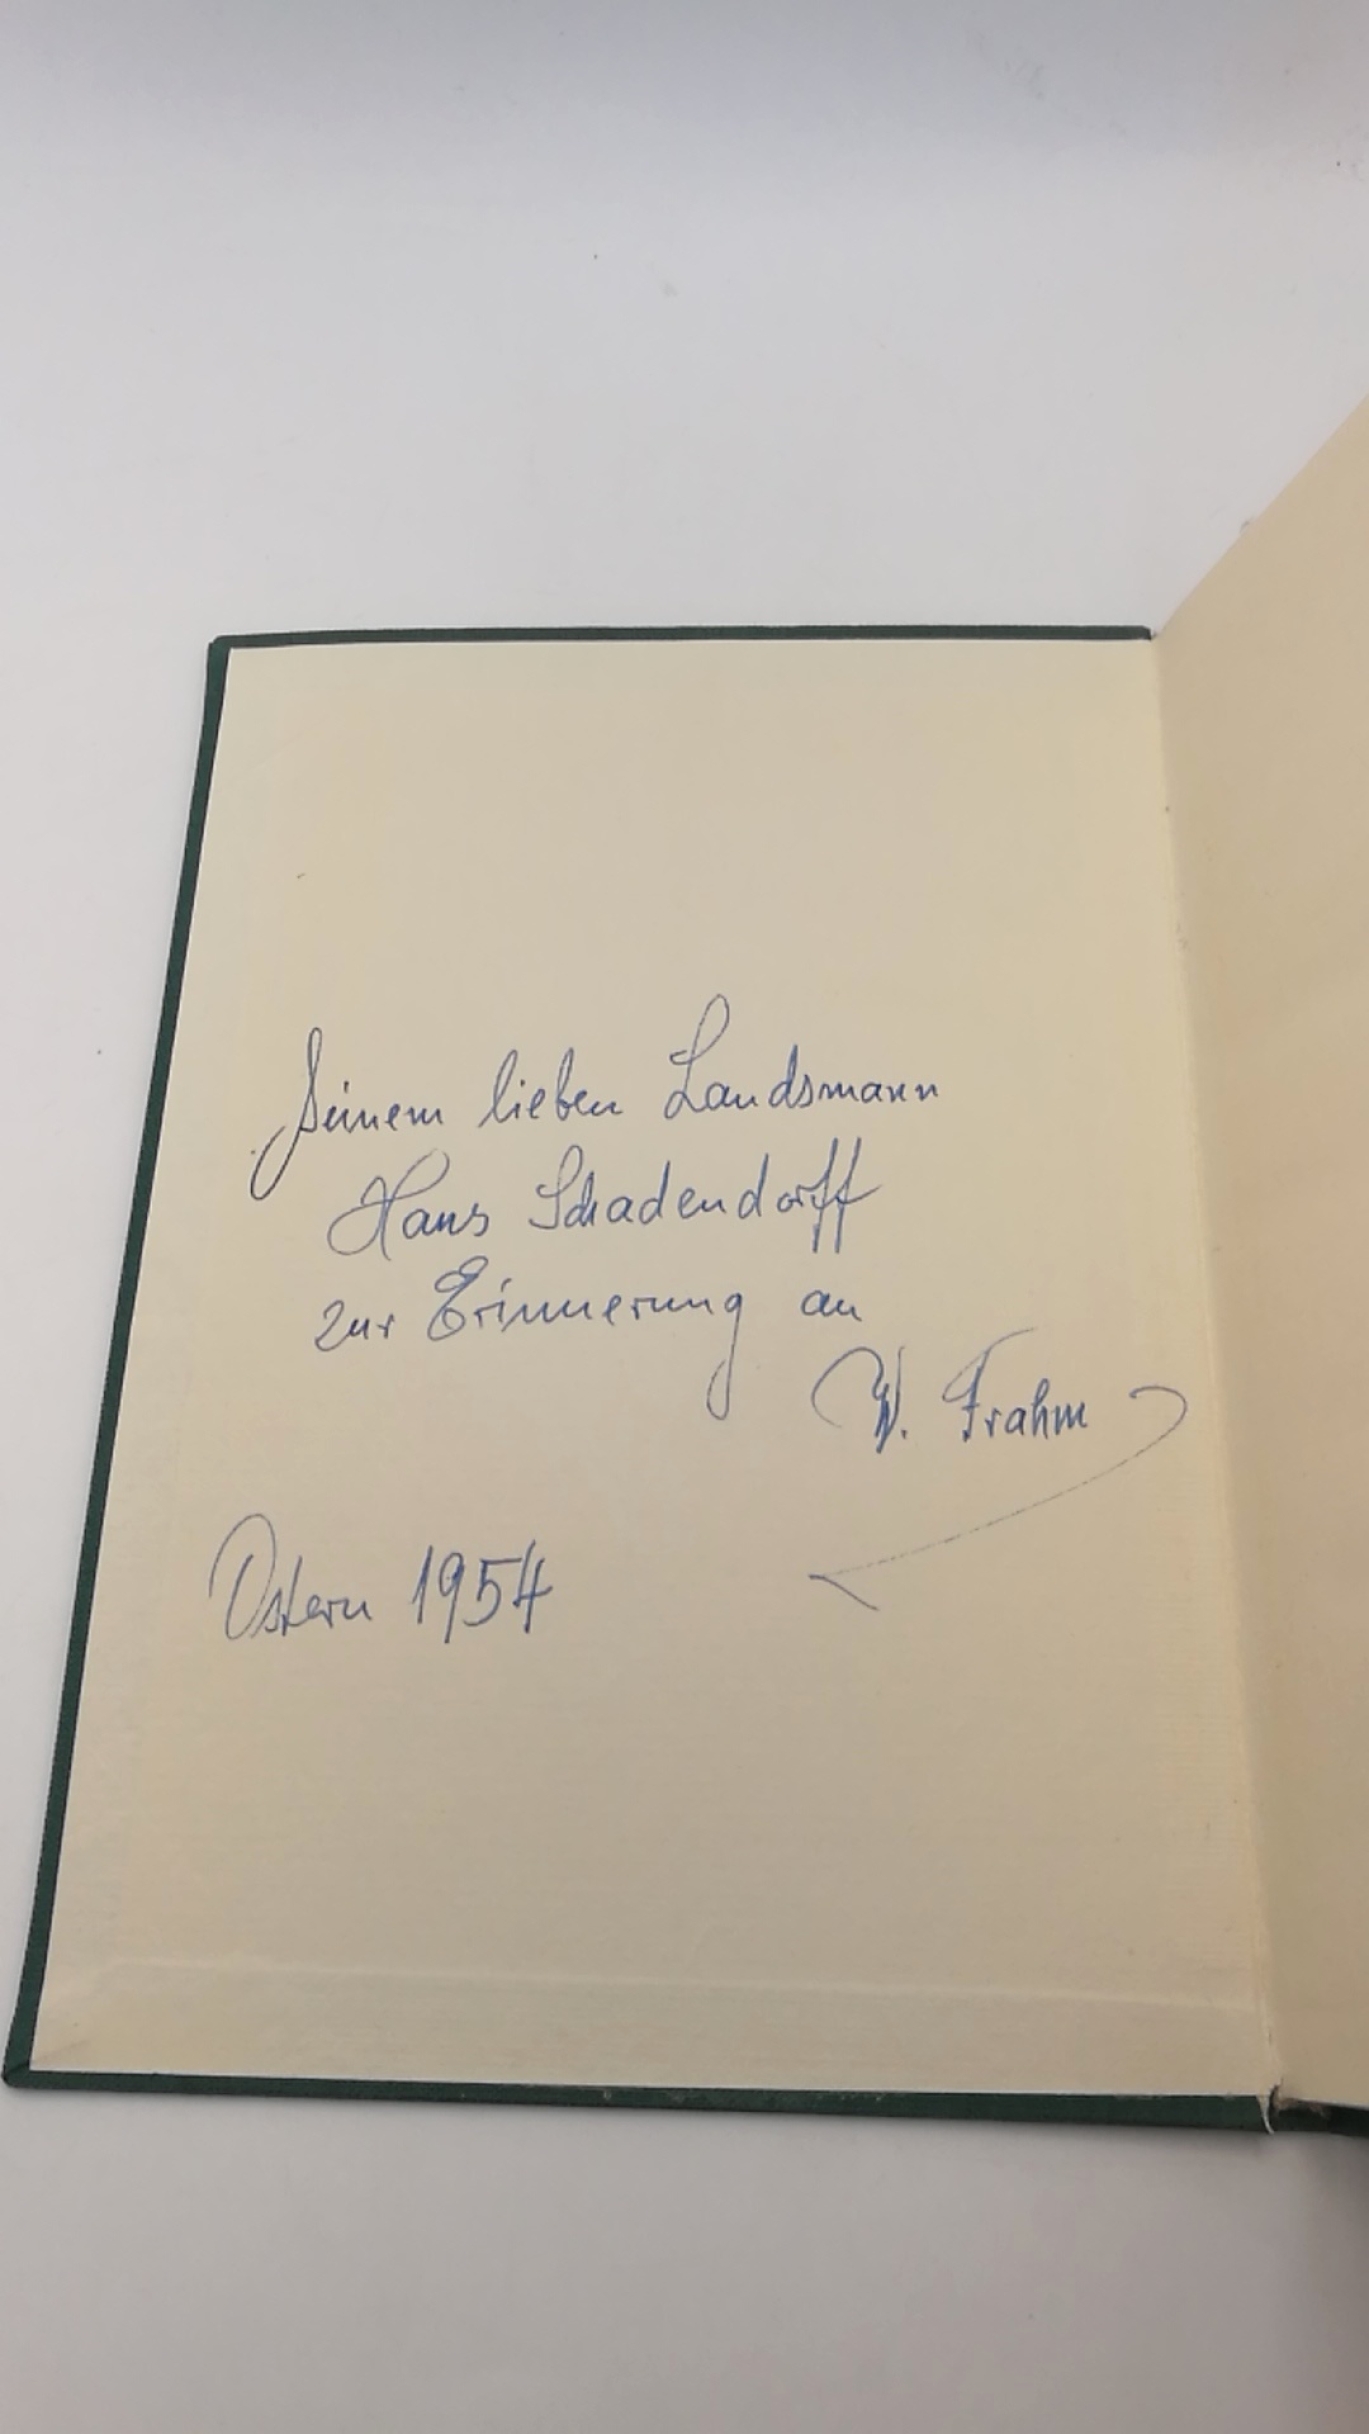 Seinem lieben Landsmann
Hans Schadendorff
zur Erinnerung an
W. Frahm
Ostern 1954